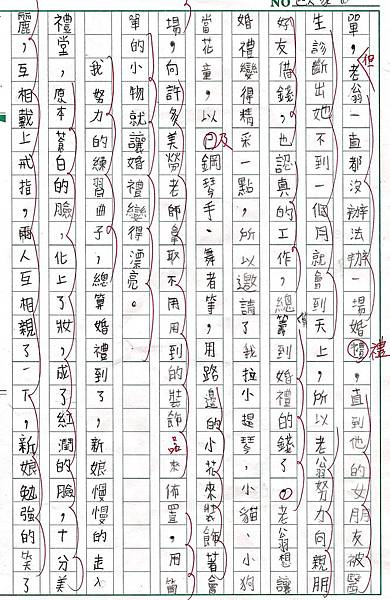 NO.
單,但老翁一直都沒辦法辦一場婚禮,直到他的女朋友被醫
生診斷出她不到一個月就會到天上,所以老翁努力向親朋
好友借錢,也認真的工作,總算到婚禮的錢了。老翁想讓
婚禮變得精采一點,所以邀請了我拉小提琴,小貓、小狗
當花童,以及鋼琴手、舞者等,用路邊的小花來裝飾著會
場,向許多美勞老師拿取不用用到的裝飾品來佈置,用簡
單的小物就讓婚禮變得漂亮。
我努力的練習曲子,總算婚禮到了,新娘慢慢的走入
禮堂,原本蒼白的臉,化上了妝,成了紅潤的臉,十分美
麗,互相戴上戒指,兩人互相親了一下,新娘勉強的笑了
禮